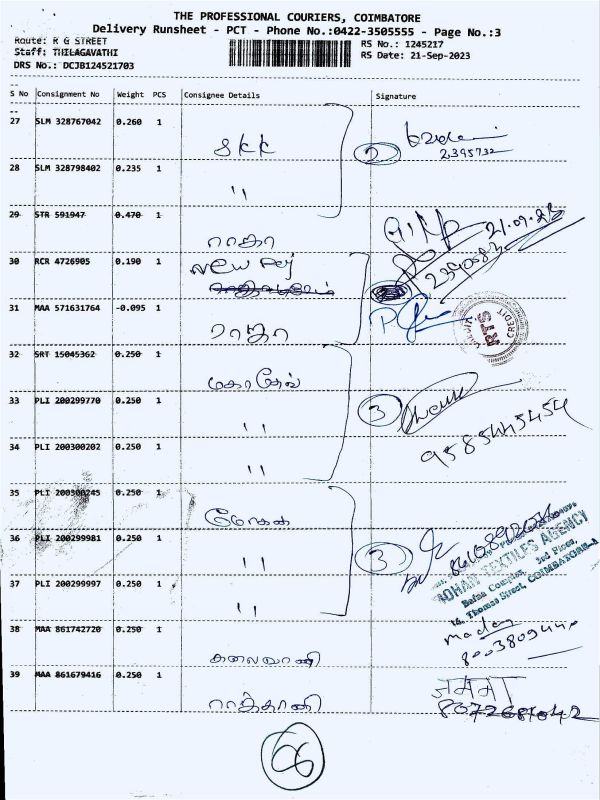 THE PROFESSIONAL COURIERS, COIMBATORE
Delivery Runsheet - PCT - Phone No.:0422-3505555 - Page No.:3
Route: R G STREET
RS No.: 1245217
Staff: THILAGAVATHI
RS Date: 21-Sep-2023
DRS No.: DCJB124521703
S No Consignment No Weight PCS Consignee Details Signature
27 SLM 328767042 0.260 1
SKK
2
2395732
28 SLM 328798402 0.235 1
"
29 STR 591947 0.470 1
21.09.23
ராகா
30 RCR 4726905 0.190 1
New
31 MAA 571631764 -0.095 1
RTS
CREDIT
32 SRT 15045362 0.250 1
மகாதேவ்
33 PLI 200299770 0.250 1
"
3
9585445454
34 PLI 200300202 0.250 1
"
35 PLI 200300245 0.250 1
மோகன்
36 PLI 200299981 0.250 1
"
3
MOHAN TEXTILES AGENCY
Bafna Complex, 3rd Floor,
14, Thomas Street, COIMBATORE-1
37 PLI 200299997 0.250 1
"
38 MAA 861742720 0.250 1
கலைவாணி
39 MAA 861679416 0.250 1
8072687042
66